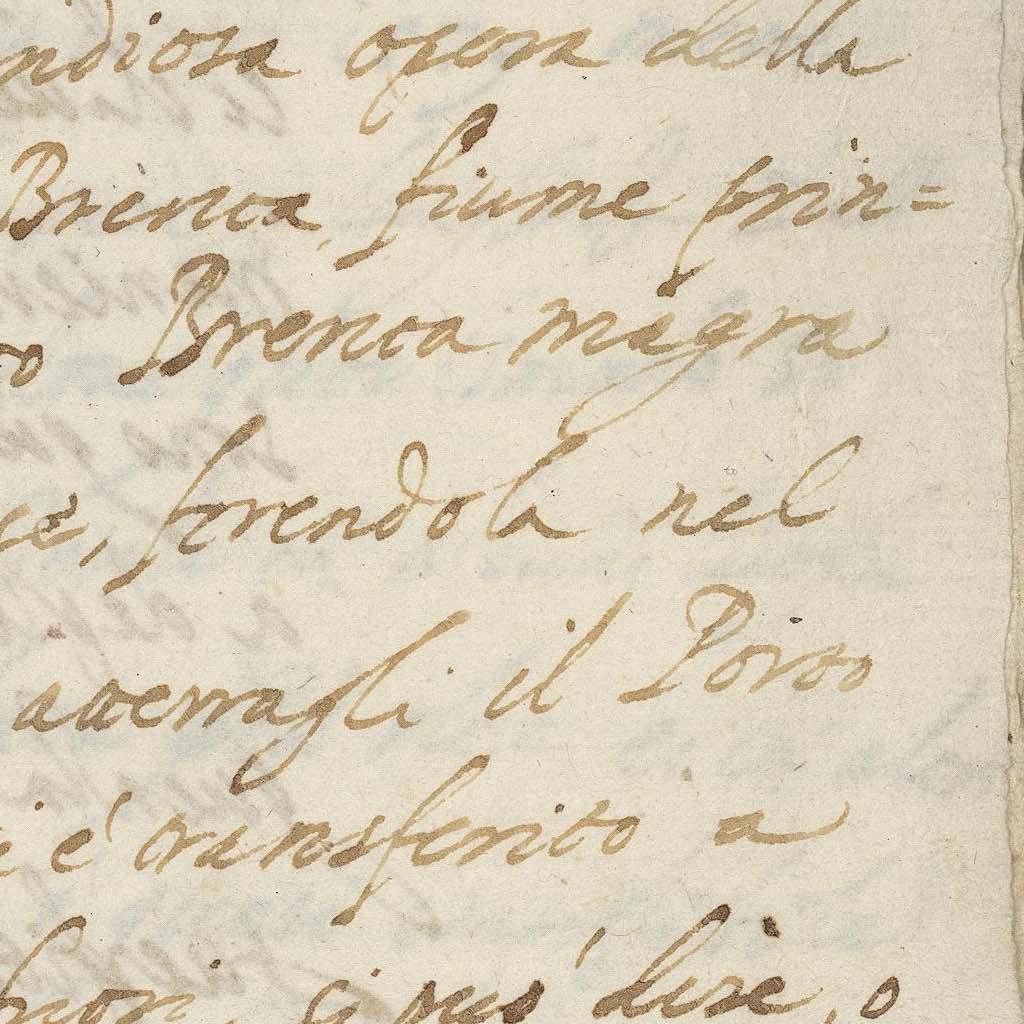 ndiosa opera della
Brenta, fiume prin=
to Brenta magra
ce, forendola nel
atterragli il Porto
i é transferito a
si può dire, o